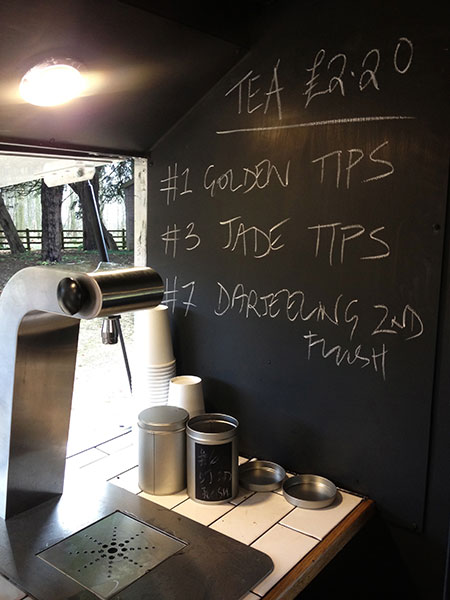 TEA £2.20
#1 GOLDEN TIPS
#3 JADE TIPS
#7 DARJEELING 2ND
FLUSH